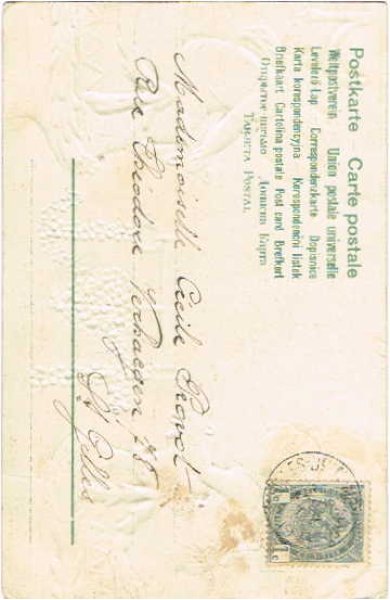 Postkarte – Carte postale
Weltpostverein Union postale universelle
Levelező-Lap Correspondenzkarte Dopisnice
Karta korespondencyjna Korespondenční lístek
Briefkaart Cartolina postale Post card Brefkort
Открытое письмо
Tarjeta Postal
1 c
Mademoiselle Cécile
Rue Théodore Verhaegen, 75
St Gilles